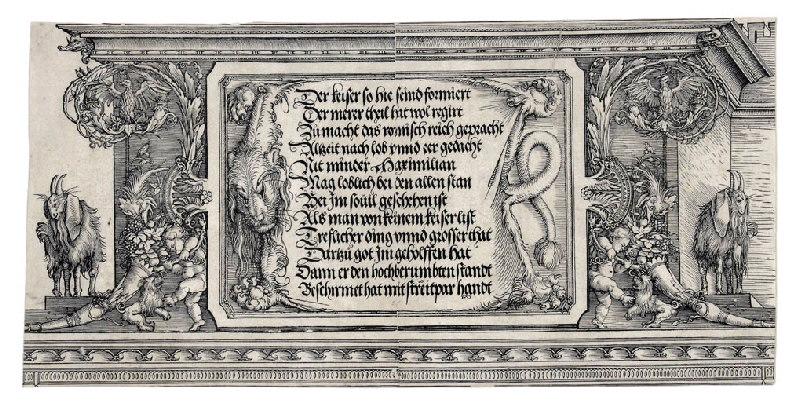 Der keiser so hie seind formiert
Der merer theil hat wol regirt
Zu macht das romisch reich gepracht
Altzeit nach lob vnnd eer gedacht
Nit minder Maximilian
Mag loblich bei den allen stan
Bei Im souil geschehen ist
Als man von keinem keiser list
Trefflicher ding vnnd grosser that
Dartzu got Im geholffen hat
Dann er den hochberumbten standt
Beschirmet hat mit streitpar handt